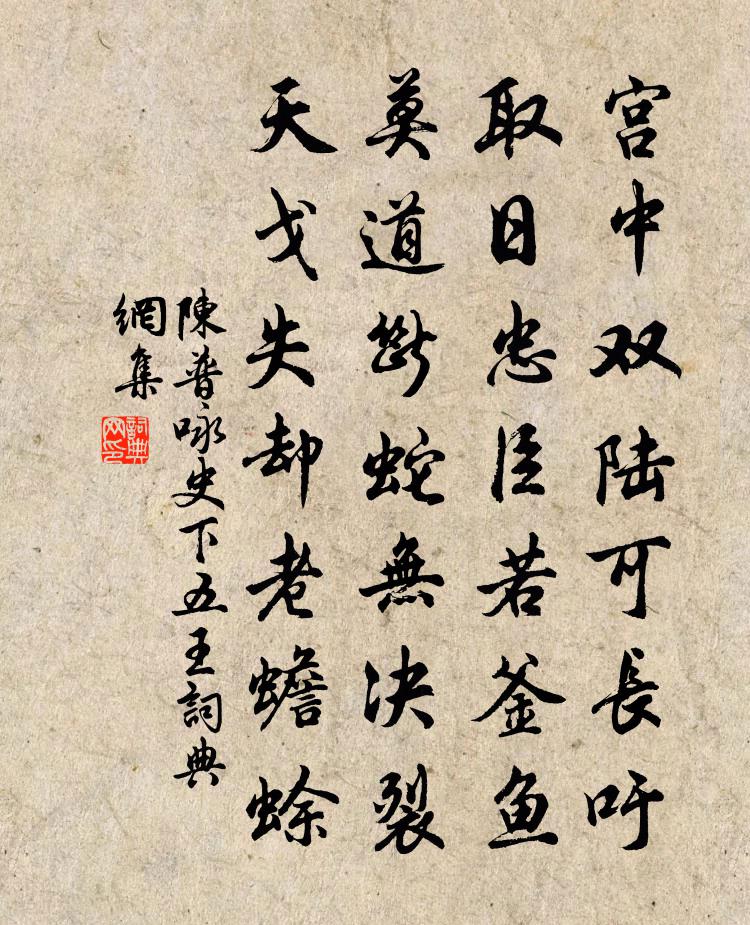 宫中双陆可長吁
取日忠臣若釜鱼
莫道斷蛇無决裂
天戈失却老蟾蜍
陳普咏史下五王詞典
網集
詞典網印